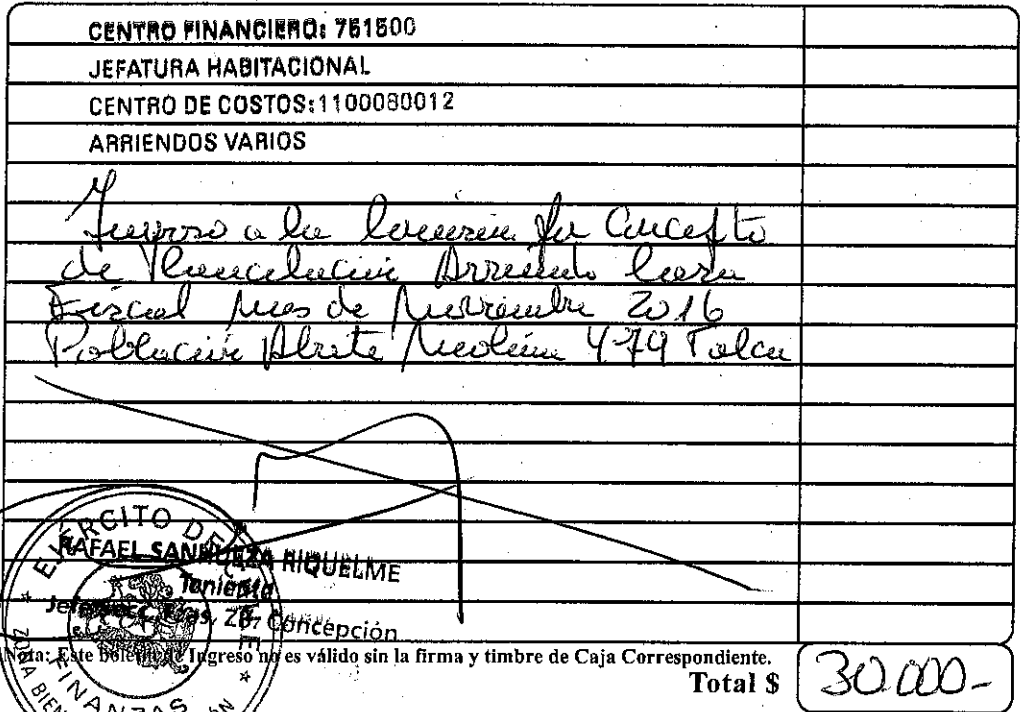 CENTRO FINANCIERO: 751500
JEFATURA HABITACIONAL
CENTRO DE COSTOS:1100080012
ARRIENDOS VARIOS
Ingreso a la Comisión por Concepto
de Cancelación Arriendo Casa
Fiscal mes de Noviembre 2016
Población Abate Molina 479 Talca
EJÉRCITO DE CHILE
RAFAEL SANHUEZA RIQUELME
Teniente
Jefe Secc. Fzas. ZB. Concepción
Nota: Este boletín de Ingreso no es válido sin la firma y timbre de Caja Correspondiente.
Total $ 30.000-
FINANZAS